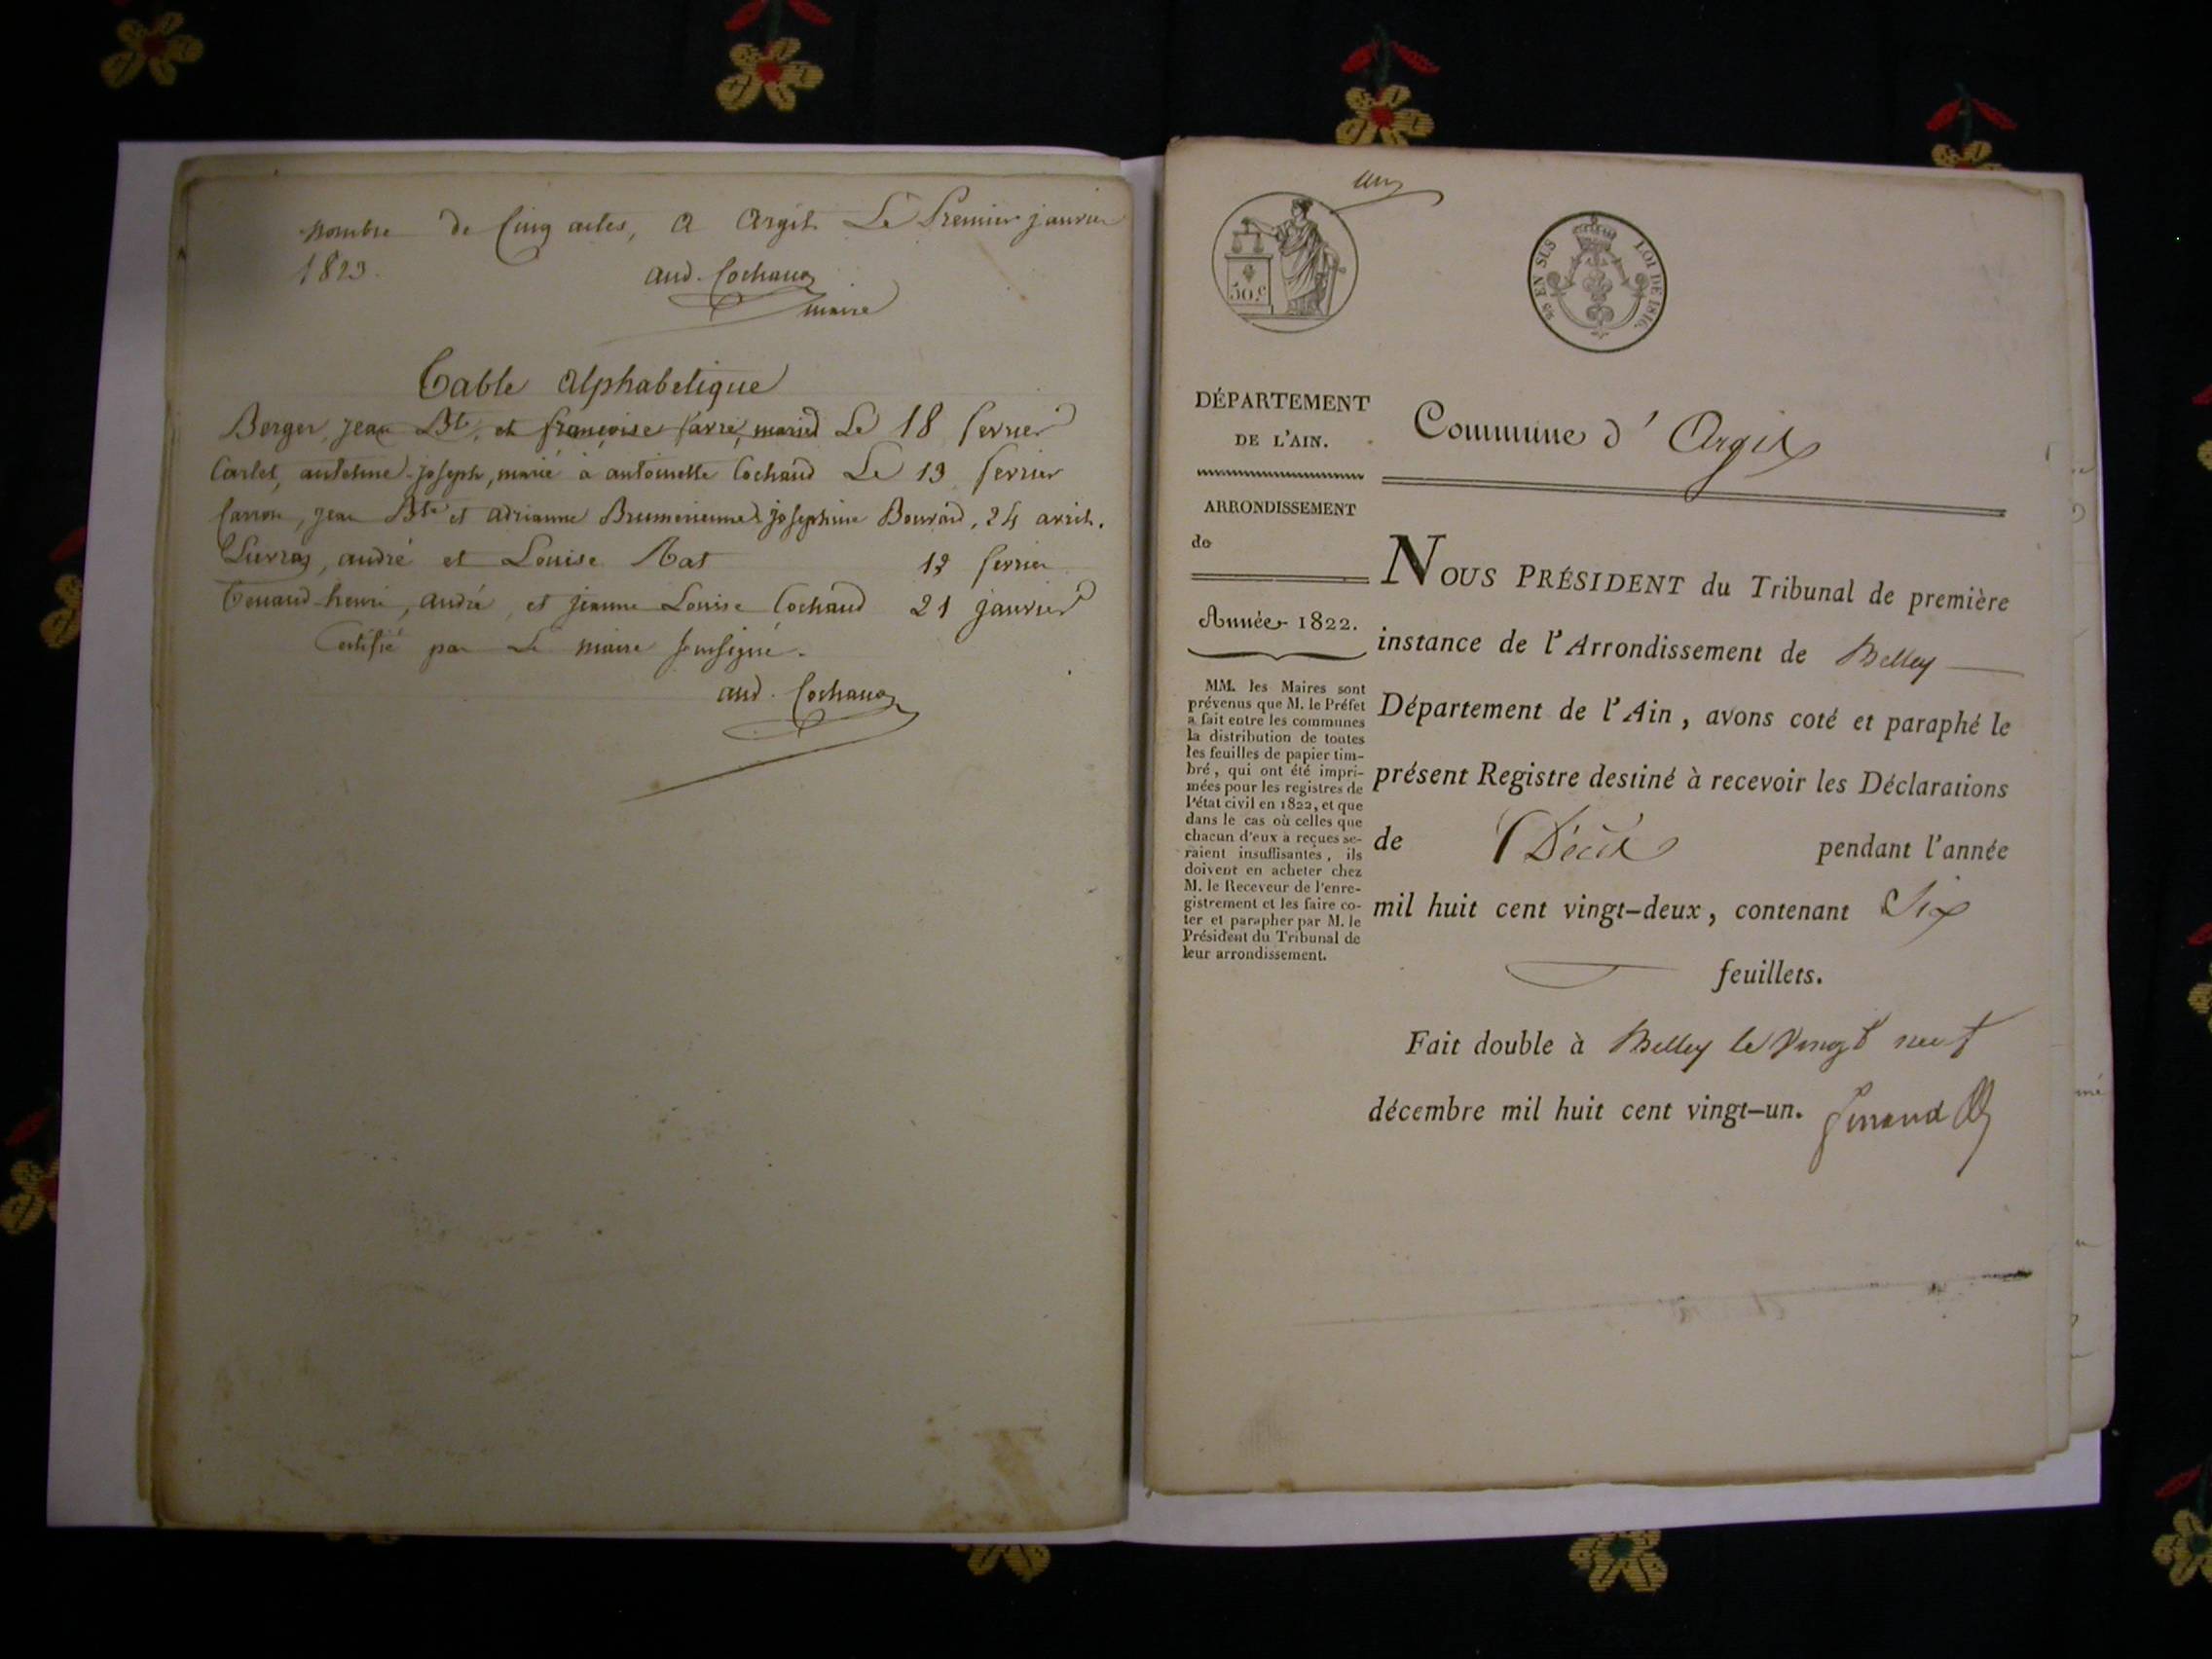 nombre de Cinq actes, a Argit Le Premier janvier
1823.
aud. Cochaud
maire
Table alphabetique
Berger, jean Bte, et françoise favre, mariés Le 18 fevrier
Carlet, antelme-joseph, marié à antoinette Cochaud Le 13 fevrier
Carron, jean Bte et adrianne josephine Bouvard, 24 avril.
andré et Louise Rat fevrier
Tenand-henri, andré, et jeanne Louise Cochaud 21 janvier
Certifié par Le maire soussigné.
aud. Cochaud
un
50 c.
EN SUS LOI DE 1816.
DÉPARTEMENT
DE L'AIN.
ARRONDISSEMENT
de
Année 1822.
MM. les Maires sont
prévenus que M. le Préfet
a fait entre les communes
la distribution de toutes
les feuilles de papier tim-
bré, qui ont été impri-
mées pour les registres de
l'état civil en 1822, et que
dans le cas où celles que
chacun d'eux a reçues se-
raient insuffisantes, ils
doivent en acheter chez
M. le Receveur de l'enre-
gistrement et les faire co-
ter et parapher par M. le
Président du Tribunal de
leur arrondissement.
Commune d'Argis
NOUS PRÉSIDENT du Tribunal de première
instance de l'Arrondissement de Belley
Département de l'Ain, avons coté et paraphé le
présent Registre destiné à recevoir les Déclarations
de Décès pendant l'année
mil huit cent vingt-deux, contenant Six
feuillets.
Fait double à Belley le vingt neuf
décembre mil huit cent vingt-un.